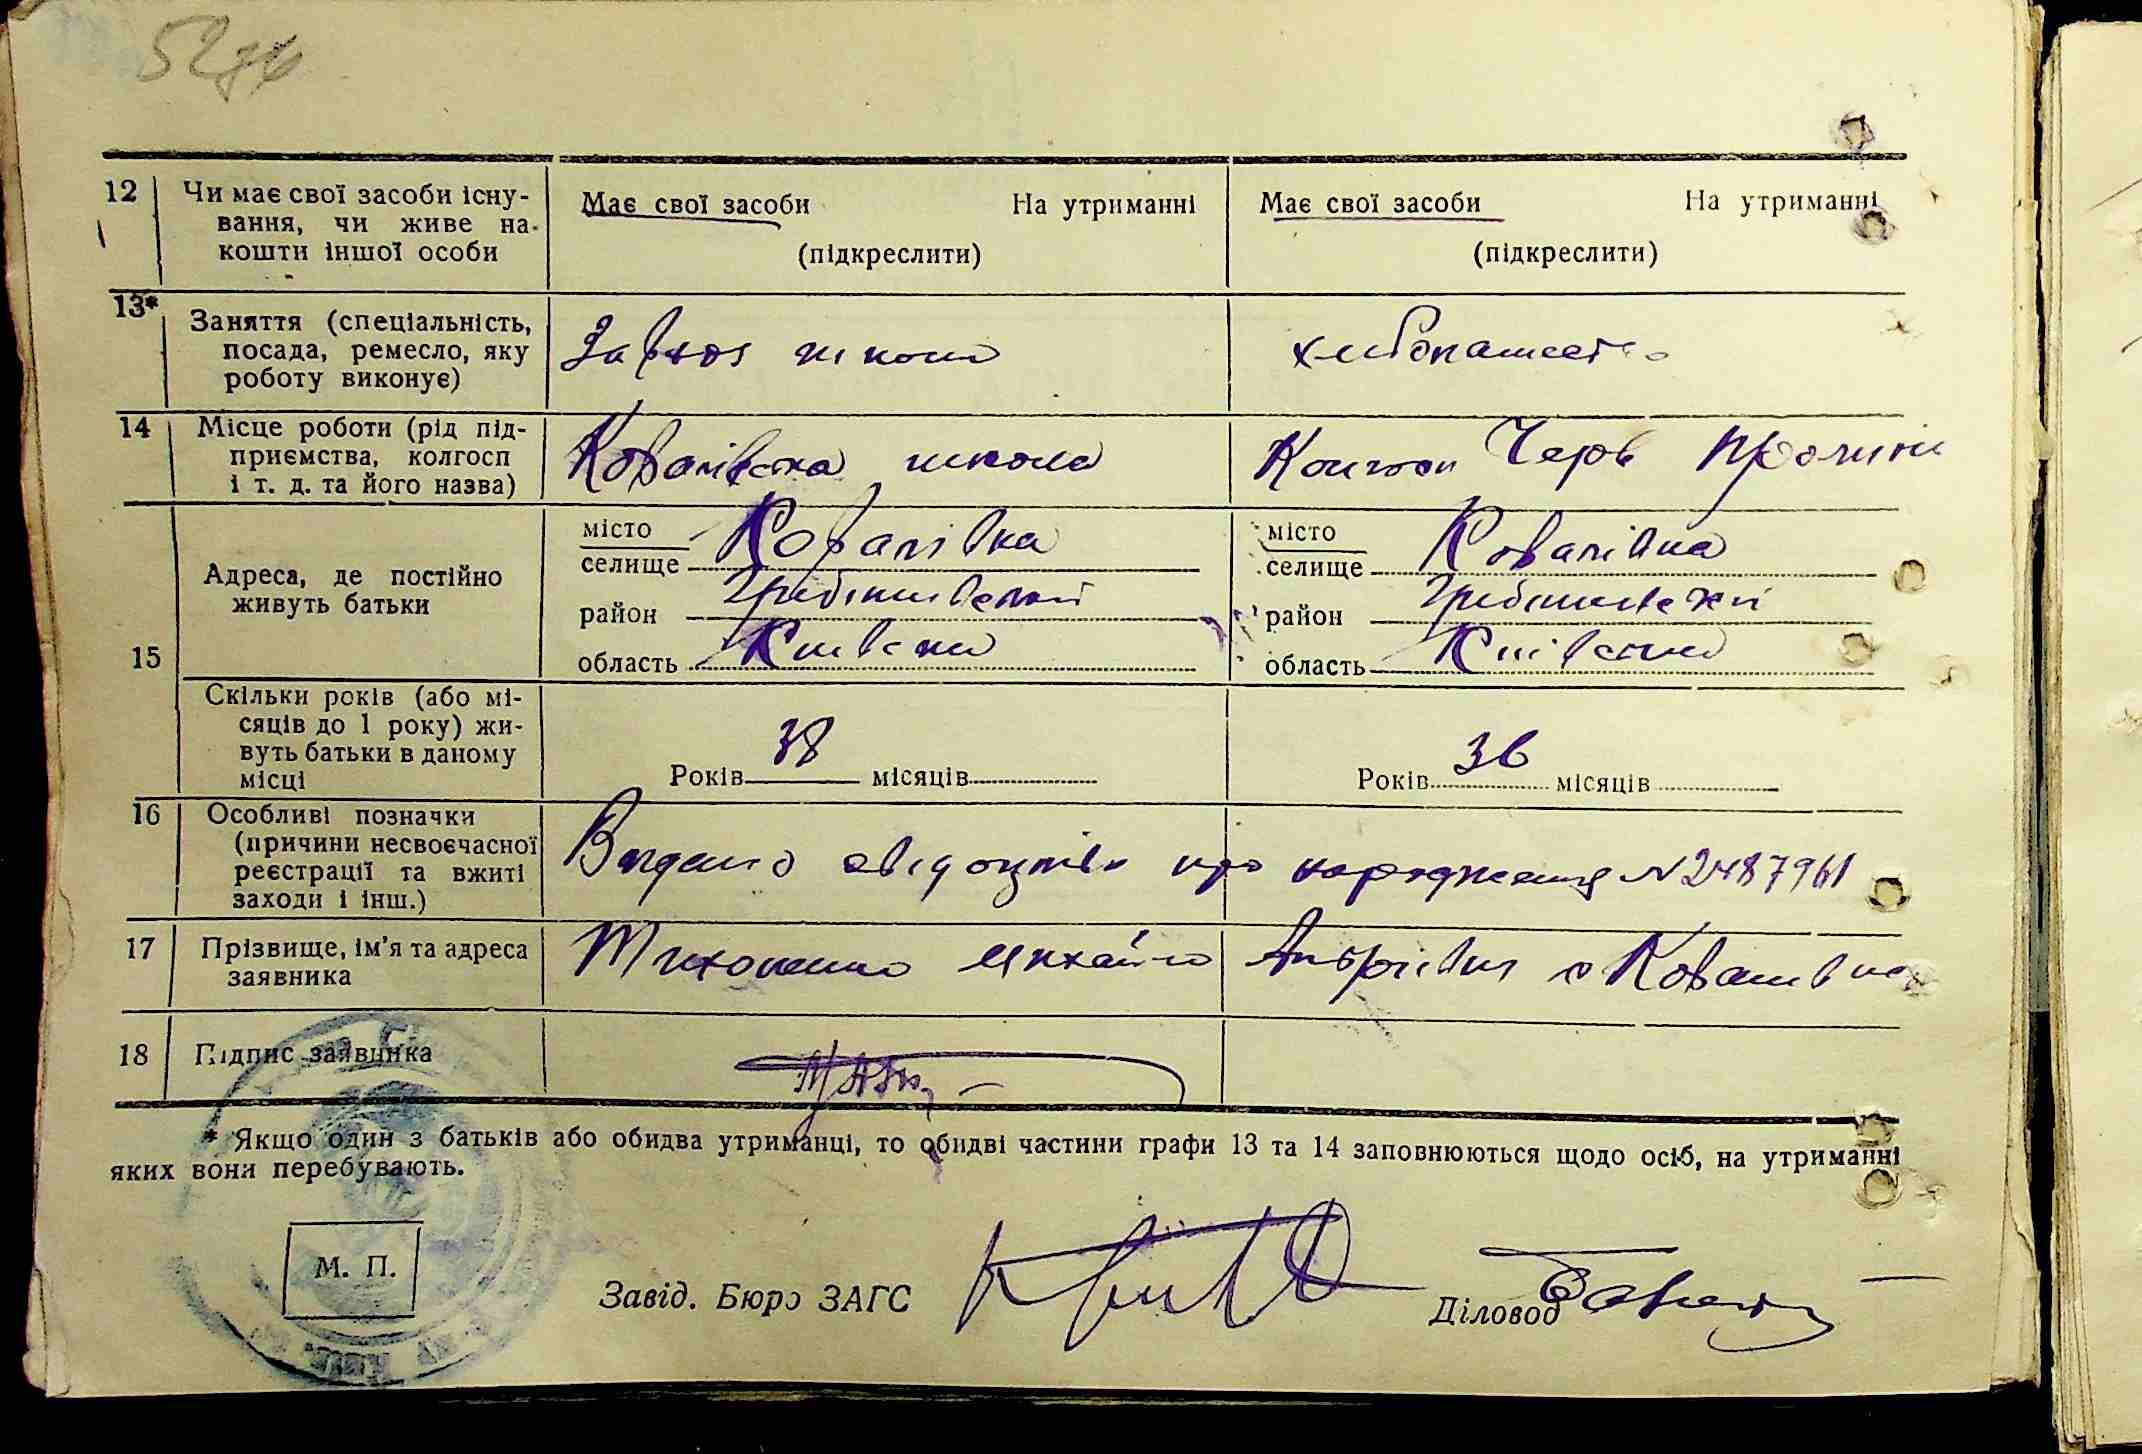 52
12 Чи має свої засоби існу-
вання, чи живе на
кошти іншої особи
Має свої засоби На утриманні
(підкреслити)
Має свої засоби На утриманні
(підкреслити)
13* Заняття (спеціальність,
посада, ремесло, яку
роботу виконує)
Завхоз школи
хліборобство
14 Місце роботи (рід під-
приємства, колгосп
і т. д. та його назва)
Ковалівська школа
Колгосп Черв
15 Адреса, де постійно
живуть батьки
місто
селище Ковалівка
район Гребінківський
область Київська
місто
селище Ковалівка
район Гребінківський
область Київська
Скільки років (або мі-
сяців до 1 року) жи-
вуть батьки в даному
місці
Років 38 місяців
Років 36 місяців
16 Особливі позначки
(причини несвоєчасної
реєстрації та вжиті
заходи і інш.)
Видано свідоцтво про народження № 2487961
17 Прізвище, ім'я та адреса
заявника
Тихоненко Михайло Андрієвич с Ковалівка
18 Підпис заявника
* Якщо один з батьків або обидва утриманці, то обидві частини графи 13 та 14 заповнюються щодо осіб, на утриманні
яких вони перебувають.
М. П.
Завід. Бюро ЗАГС
Діловод